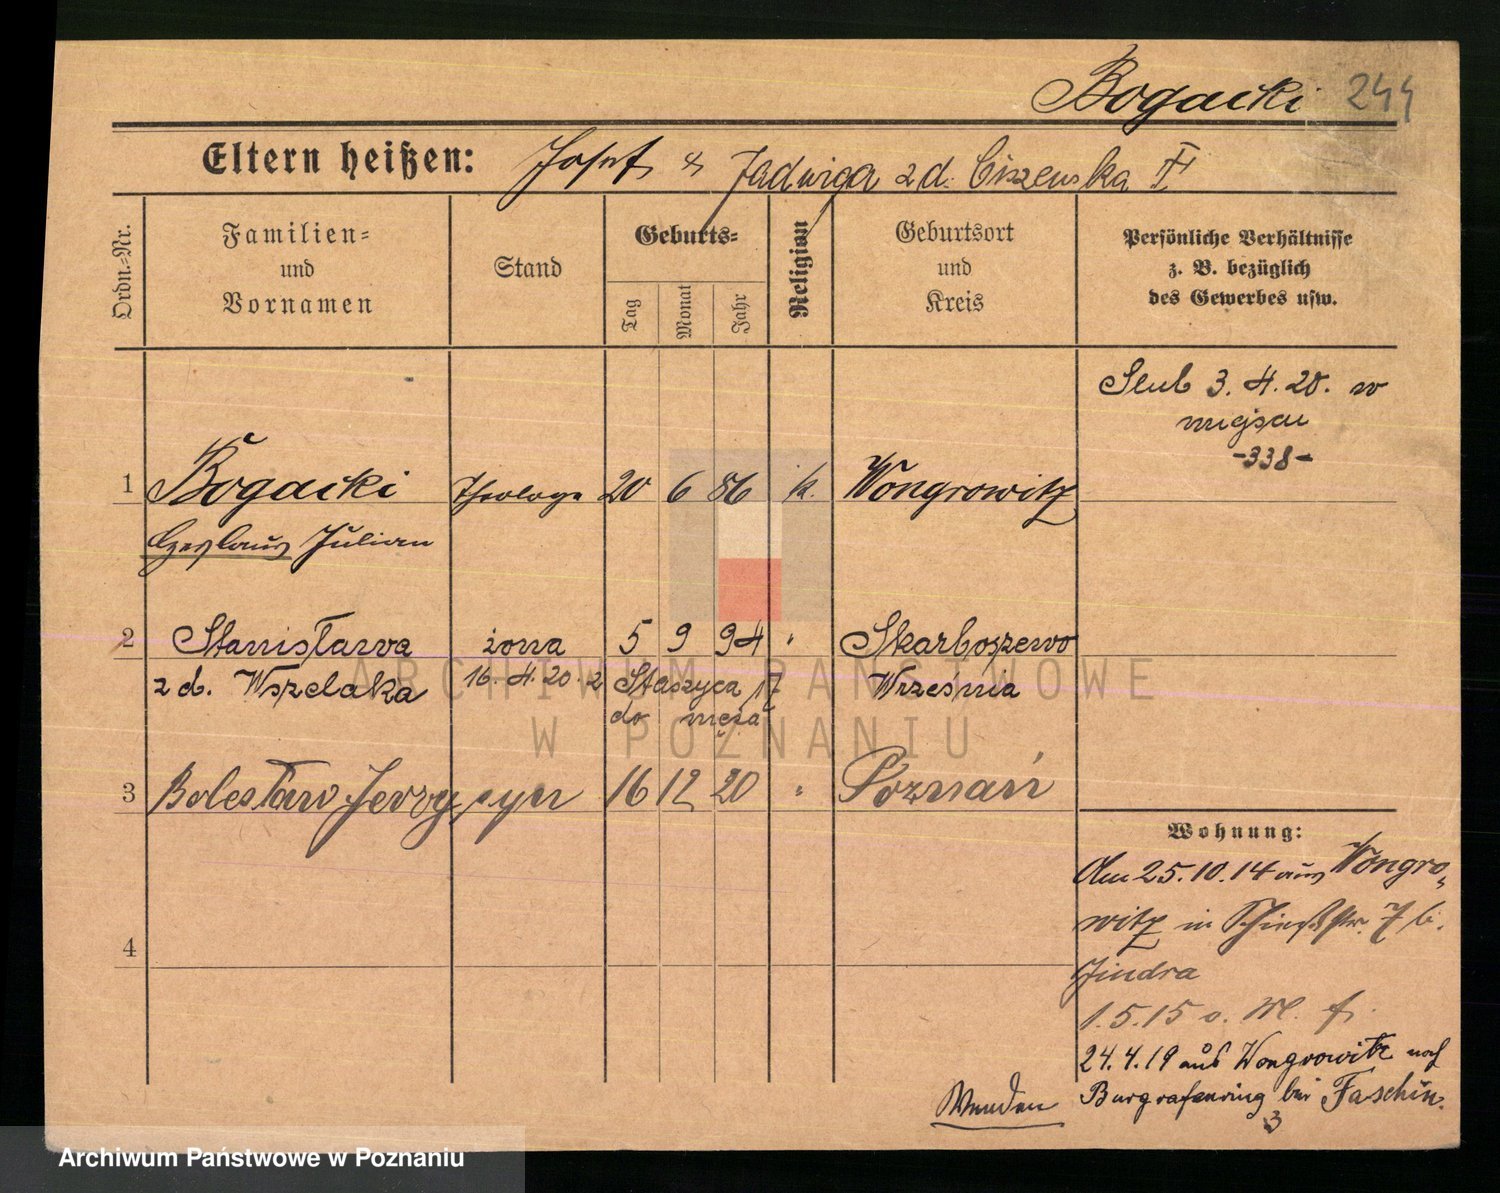 Bogacki 244
Eltern heißen: Josef & Jadwiga z d. Ciszewska
Ordn.-Nr.
Familien-
und
Vornamen
Stand
Geburts-
Tag
Monat
Jahr
Religion
Geburtsort
und
Kreis
Persönliche Verhältnisse
z. B. bezüglich
des Gewerbes usw.
Slub 3. 4. 20. w
miejscu
-338-
1 Bogacki Theologe 20 6 86 k. Wongrowitz
Czeslaus Julian
2 Stanisława żona 5 9 94 " Skarboszewo
z d. Wszelaka 16. 4. 20. z Staszyca 17 Września
do męża
3 Bolesław Jerzy syn 16 12 20 " Poznań
4
Wohnung:
Am 25.10.14 aus Wongro-
witz in Schießstr. 7 b.
Jindra
1.5.15 o. M. f.
24.4.19 aus Wongrowitz nach
Burggrafenring 3 bei Faschin.
Wenden
ARCHIWUM PAŃSTWOWE
W POZNANIU
Archiwum Państwowe w Poznaniu